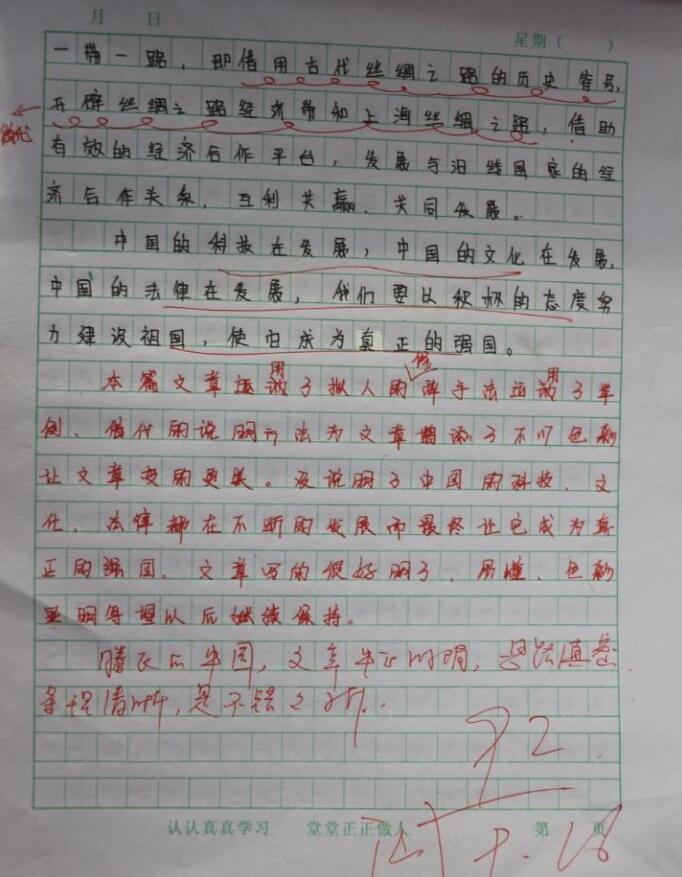 月 日
星期（ ）
一带一路，即借用古代丝绸之路的历史 符号，
开辟丝绸之路经济带和上海丝绸之路，借助
有效的经济合作平台，发展与沿线国家的经
济合作关系，互利共赢、共同发展。
中国的科技在发展，中国的文化在发展，
中国的法律在发展，我们要以积极的态度努
力建设祖国，使它成为真正的强国。
本篇文章运用了拟人的修辞手法运用了举
例、借代的说明方法为文章增添了不少色彩
让文章变的更美。及说明了中国的科技、文
化、法律都在不断的发展而最终让它成为真
正的强国。文章写的很好明了、易懂、色彩
鲜明希望以后继续保持。
腾飞的中国，文章
条理清晰，是不错之
92
9.18
认认真真学习 堂堂正正做人 第 页